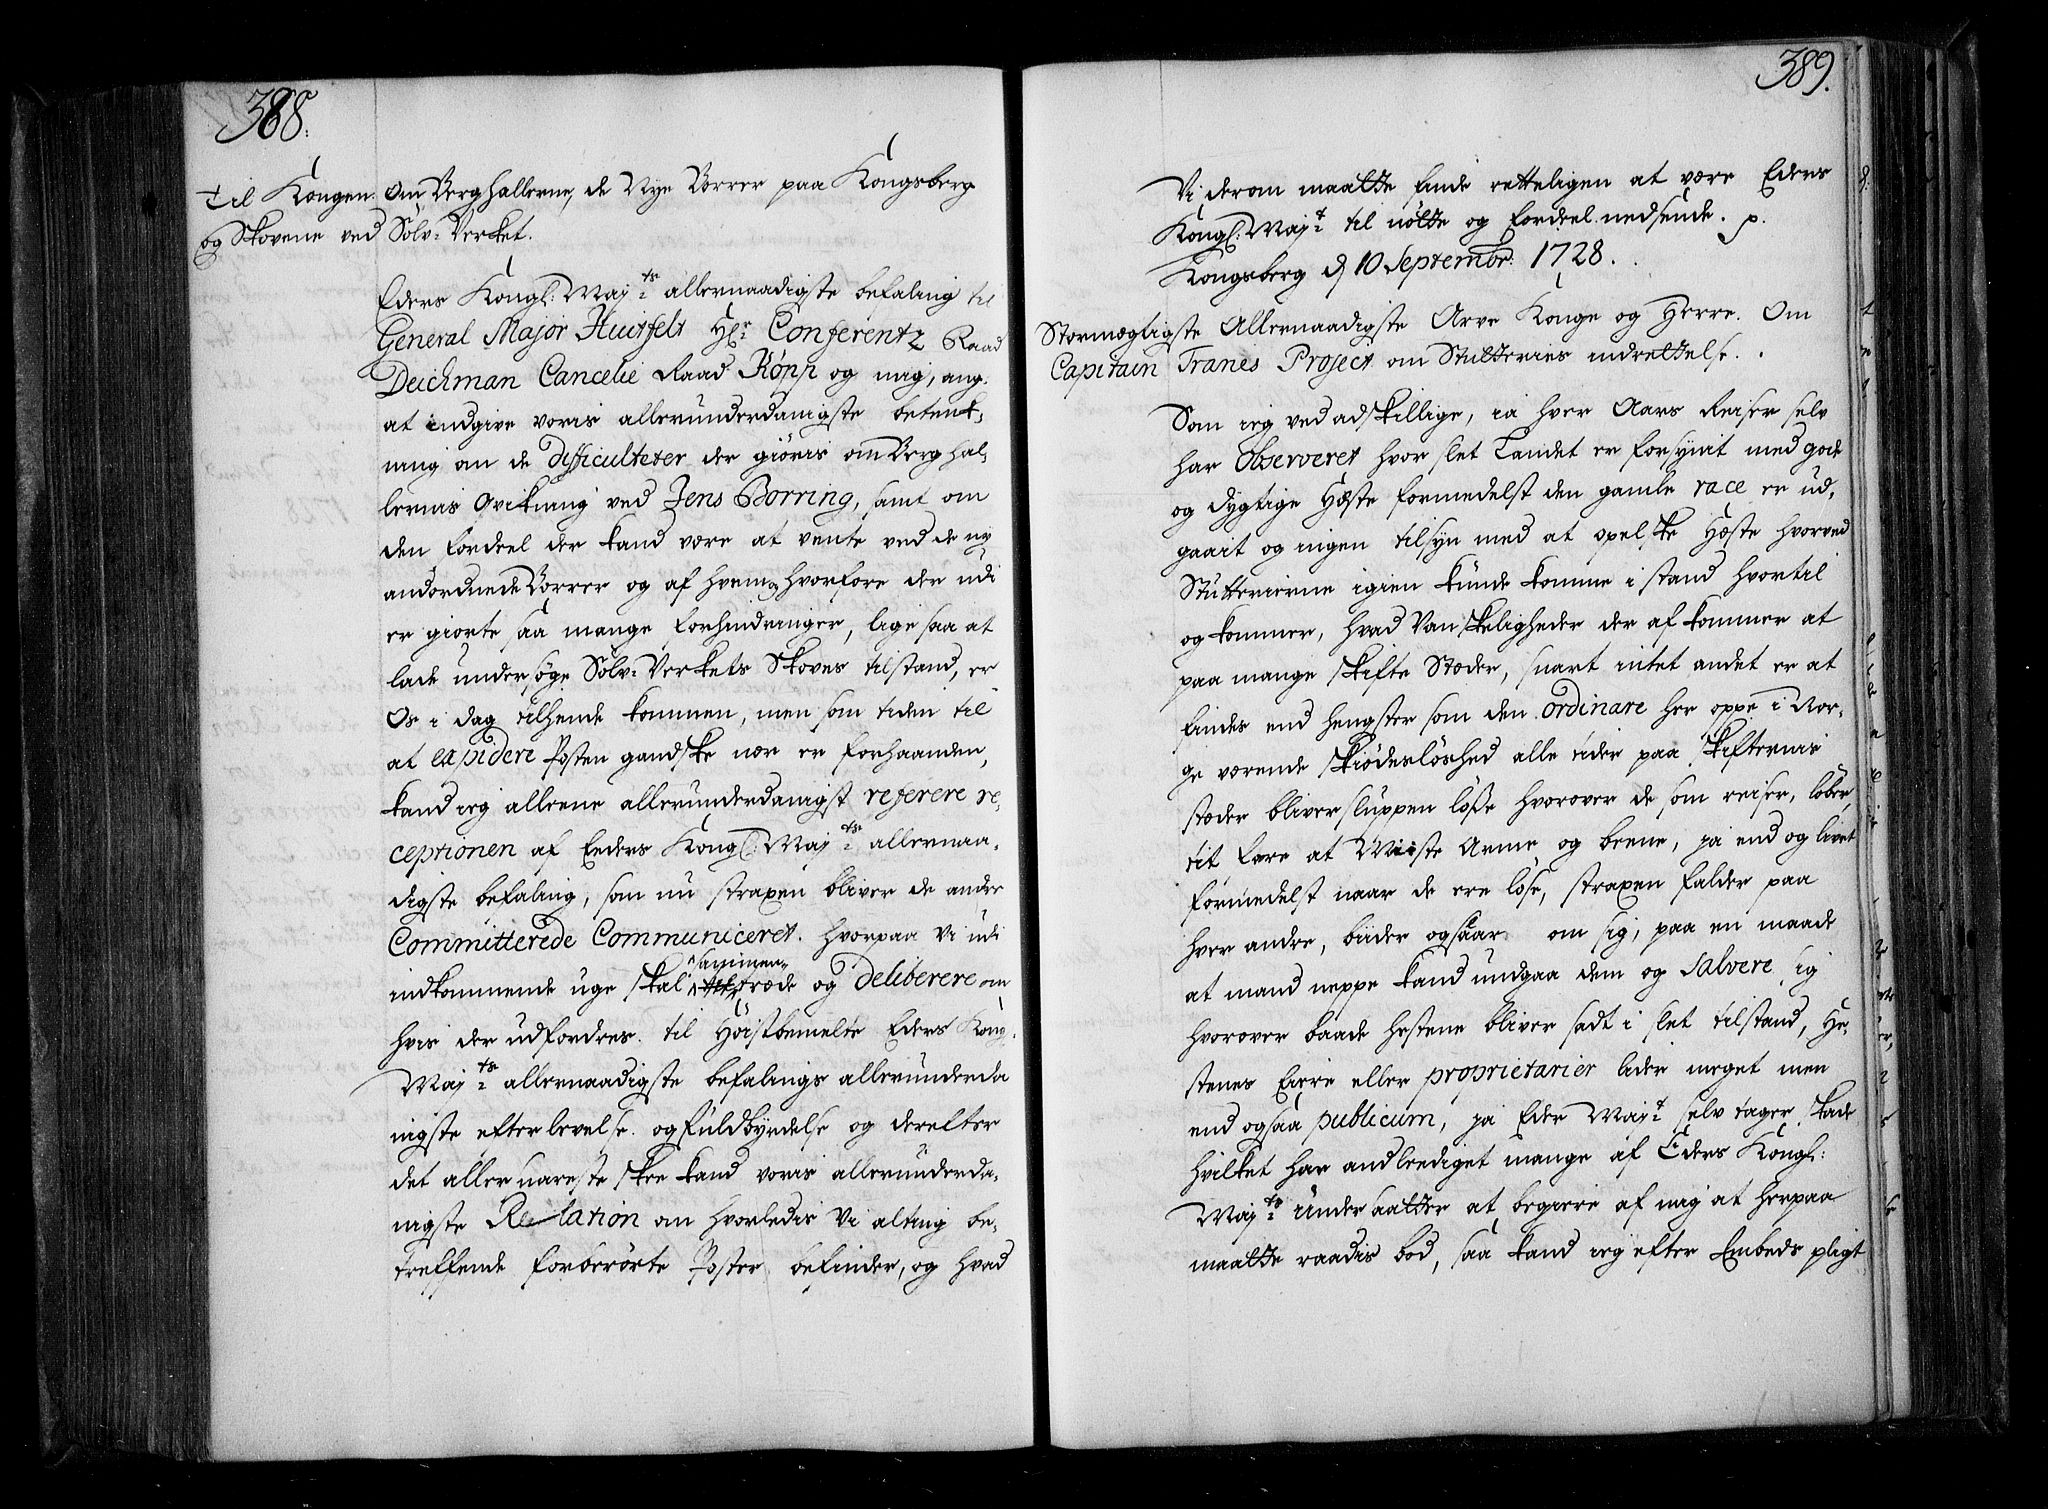 388.
Til Kongen om Berghallerne, de Nye Borrer paa Kongsberg
og Skovene ved Sølv-Verket.
Eders Kongl: May:ts allernaadigste befaling til
General Major Huitfelt Hr. Conferentz Raad
Deichman Cancelie Raad Röpp og mig, ang.
at indgive voris allerunderdanigste betenk-
ning om de difficulteter der giøris om Berghal-
lernis qvikning ved Jens Borring, samt om
den fordeel der kand være at vente ved de ny
andordnede Borrer og af hvem og hvorfore der udi
er giorte saa mange forhindringer, lige saa at
lade undersøge Sølv-Verkets Skoves tilstand, er
Os i dag tilhende kommen, men som tiden til
at expidere Posten gandske nær er forhaanden,
kand ieg alleene allerunderdanigst referere re-
ceptionen af Eeders Kongl: May:ts allernaa-
digste befaling, som nu straxen bliver de andre
Committerede Communiceret. hvorpaa Vi udi
indkommende uge skal sammen-
træde og deliberere om
hvis der udfordres til Høistbemelte Eders Kong.
May:ts allernaadigste befalings allerunderda
nigste efterlevelse og fuldbyrdelse og derefter
det aller snareste skee kand voris allerunderda-
nigste Relation om hvorledis Vi alting be-
treffende forberørte Poster befinder, og hvad
389.
Vi derom maatte finde retteligen at være Eders
Kongl: May:t til nötte og fordeel nedsende. p.
Kongsberg d 10 Septembr: 1728.
Stormægtigste Allernaadigste Arve Konge og Herre. Om
Capitain Tranes Project om Stutteries indrettelse.
Som ieg ved adskillige, ia hver Aars Reiser selv
har Observeret hvor slet Landet er forsynit med gode
og dygtige Hæste formedelst den gamle race er ud-
gaait og ingen tilsyn med at opelske Hæste hvorved
Stutterierne igien kunde komme i stand hvortil
og kommer, hvad Vanskeligheder der af kommer at
paa mange skifte Stæder, snart intet andet er at
findes end hengster som den ordinare her oppe i Nor-
ge værende skiødesløshed alle tider paa skifternis
stæder bliver sluppen løsse hvorover de som reiser, løber
tit fare at Miste Arme og beene, ja end og livet
formedelst naar de ere løse, straxen falder paa
hver andre, biider og saar om sig, paa en maade
at mand neppe kand undgaa dem og salvere sig
hvorover baade hestene bliver sadt i slet tilstand, He-
stenes Eiere eller proprietarier lider meget men
end ogsaa publicum, ja Eder May:t selv tager skade
hvilket har andlediget mange af Eders Kongl:
May:ts undersaatter at begiere af mig at herpaa
maatte raadis bod, saa kand ieg efter Embeds pligt